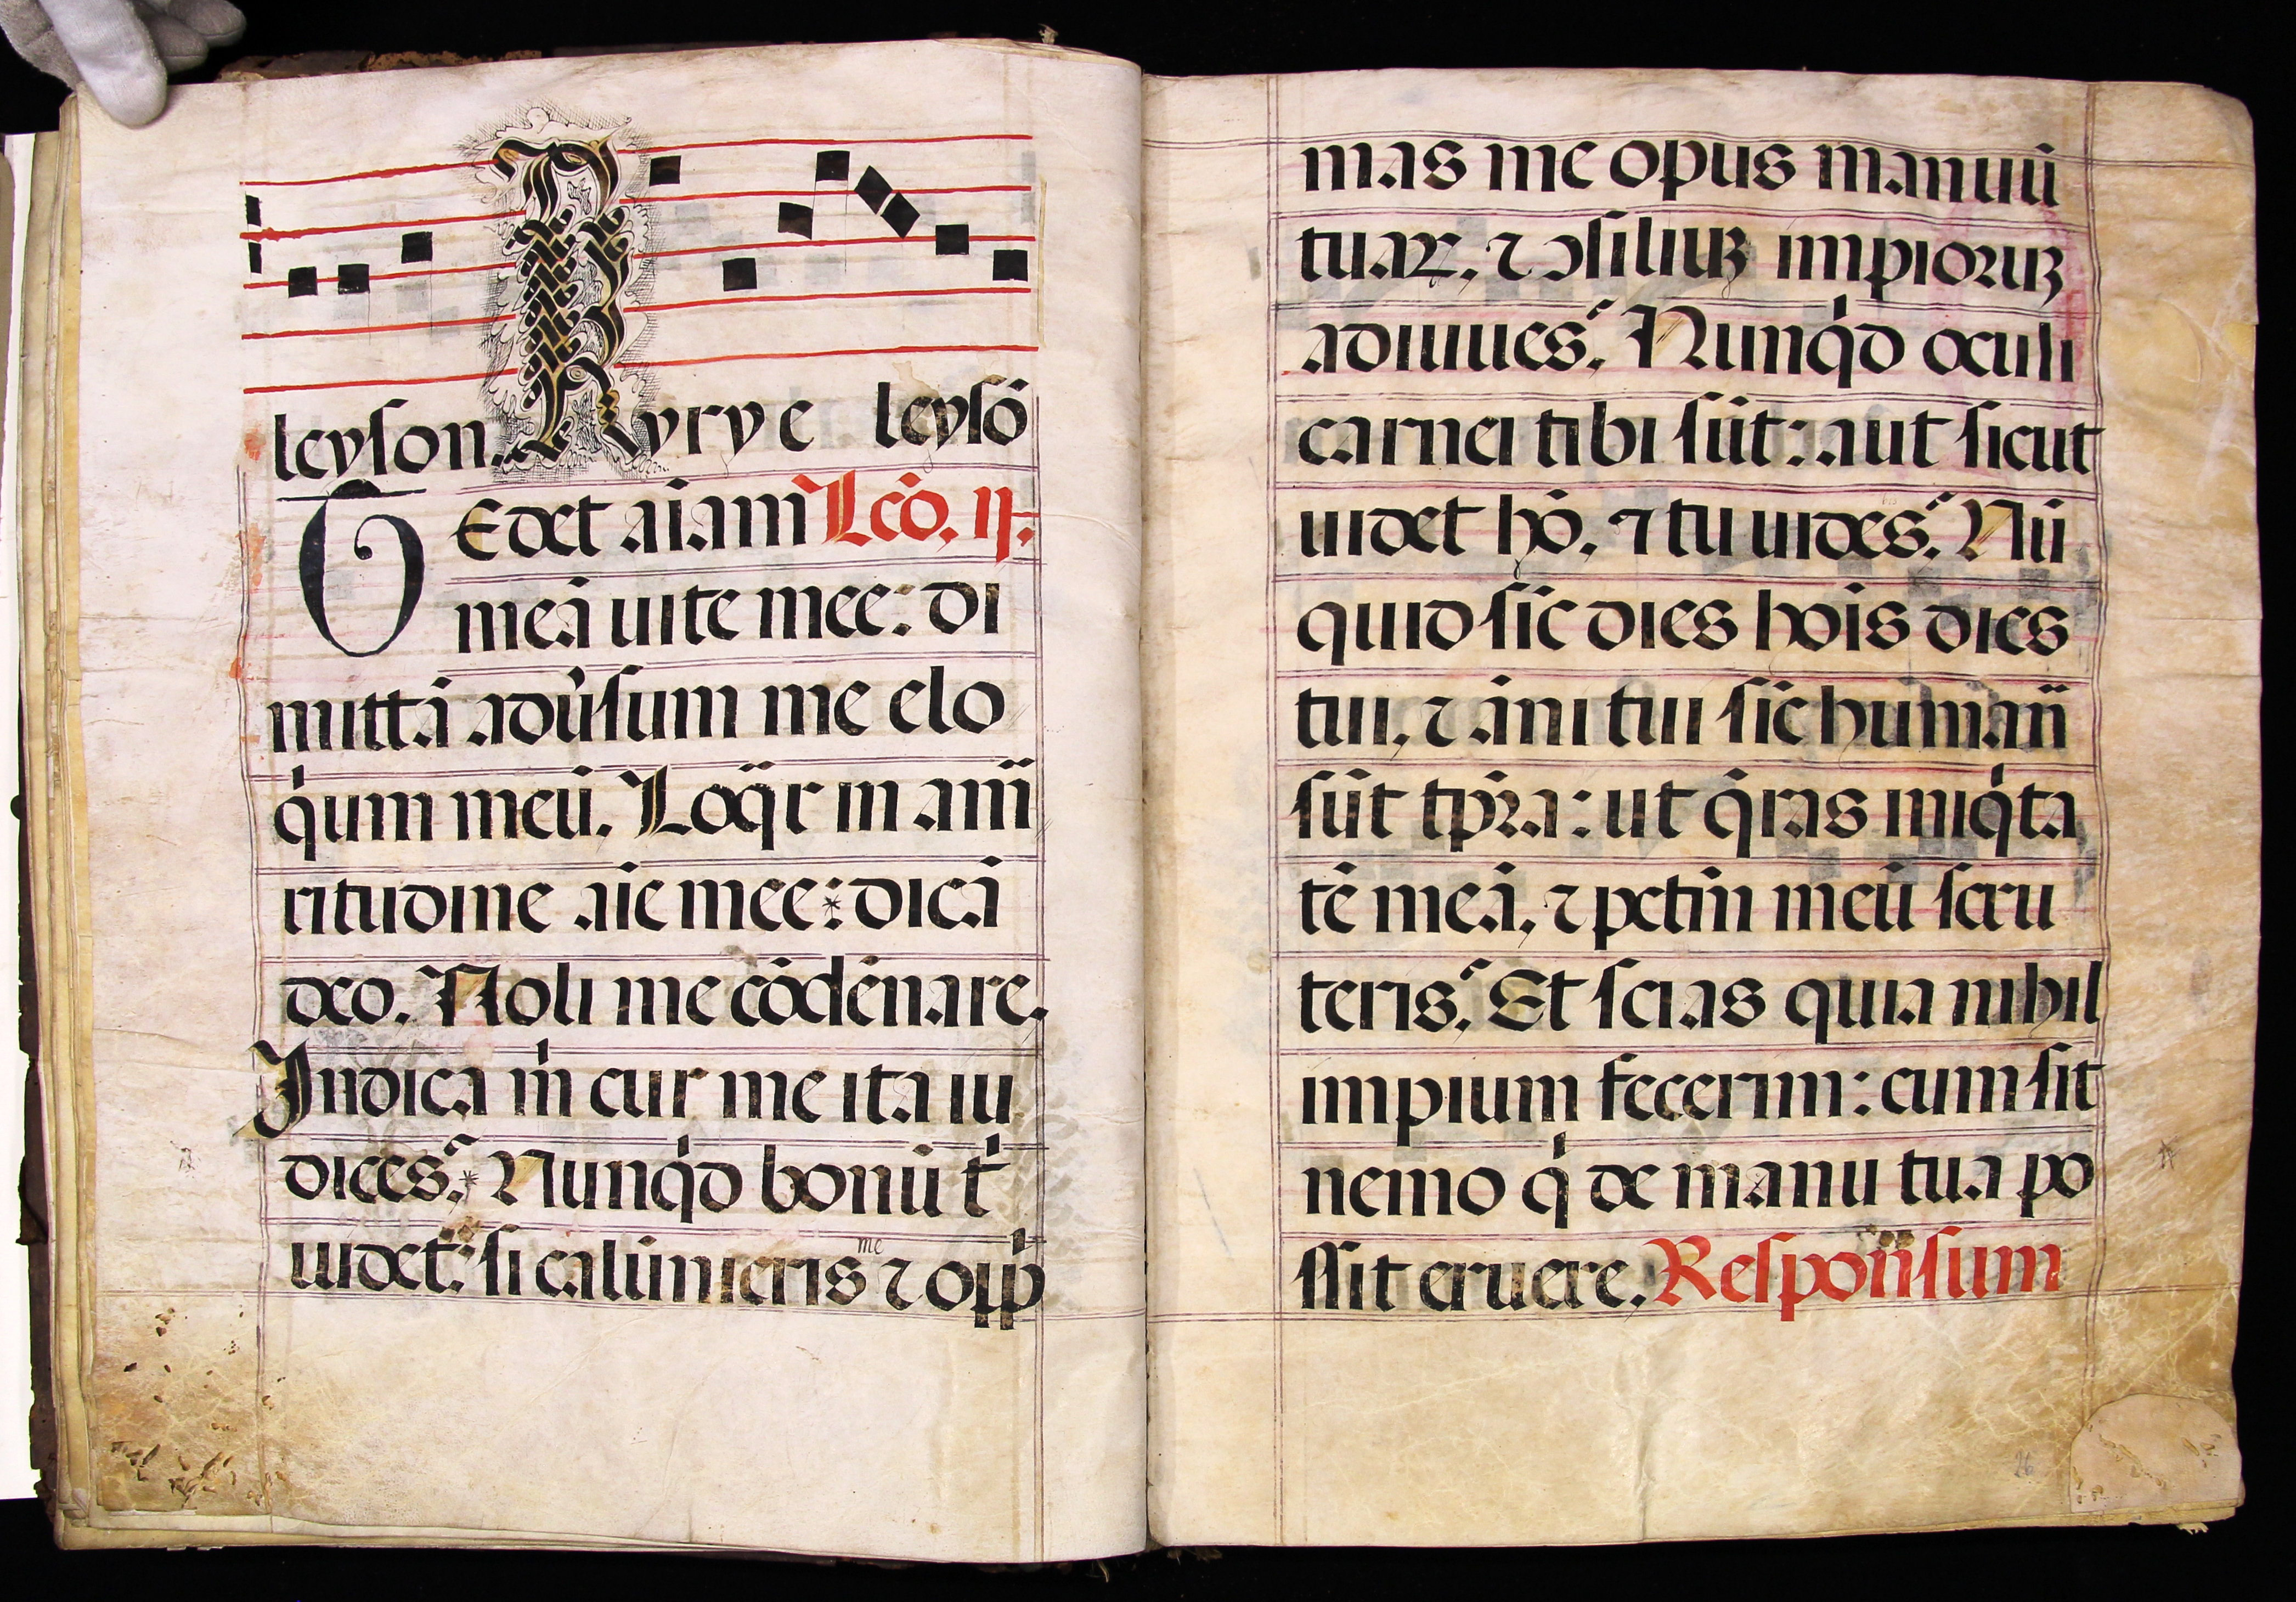 leyson. Kyrye leysõ
TEdet aĩam Lcõ. ij.
meã uite mee: di
mittã adũsum me elo
qͥum meũ. Loqͣr in amã
ritudine aĩe mee: dicã
deo. Noli me cõdẽnare.
Indica mͥ cur me ita iu
dices? Nunqͥd bonũ tͥ
uidet: si calũnieris me ⁊ opp̃
mas me opus manuũ
tuaꝝ, ⁊ ꝯsiliuꝫ impioruꝫ
adiuues? Nunqͥd oculi
carnei tibi sũt: aut sicut
uidet hõ, ⁊ tu uides? Nũ
quid sic̃ dies hoĩs dies
tui, ⁊ ãni tui sic̃ humañ
sũt tp̃ra: ut qͣras iniqͥta
tẽ meã, ⁊ petm̃ meũ scru
teris? Et scias quia nihil
impium fecerim: cum sit
nemo qͥ de manu tua po
ssit eruere. Responsum
26